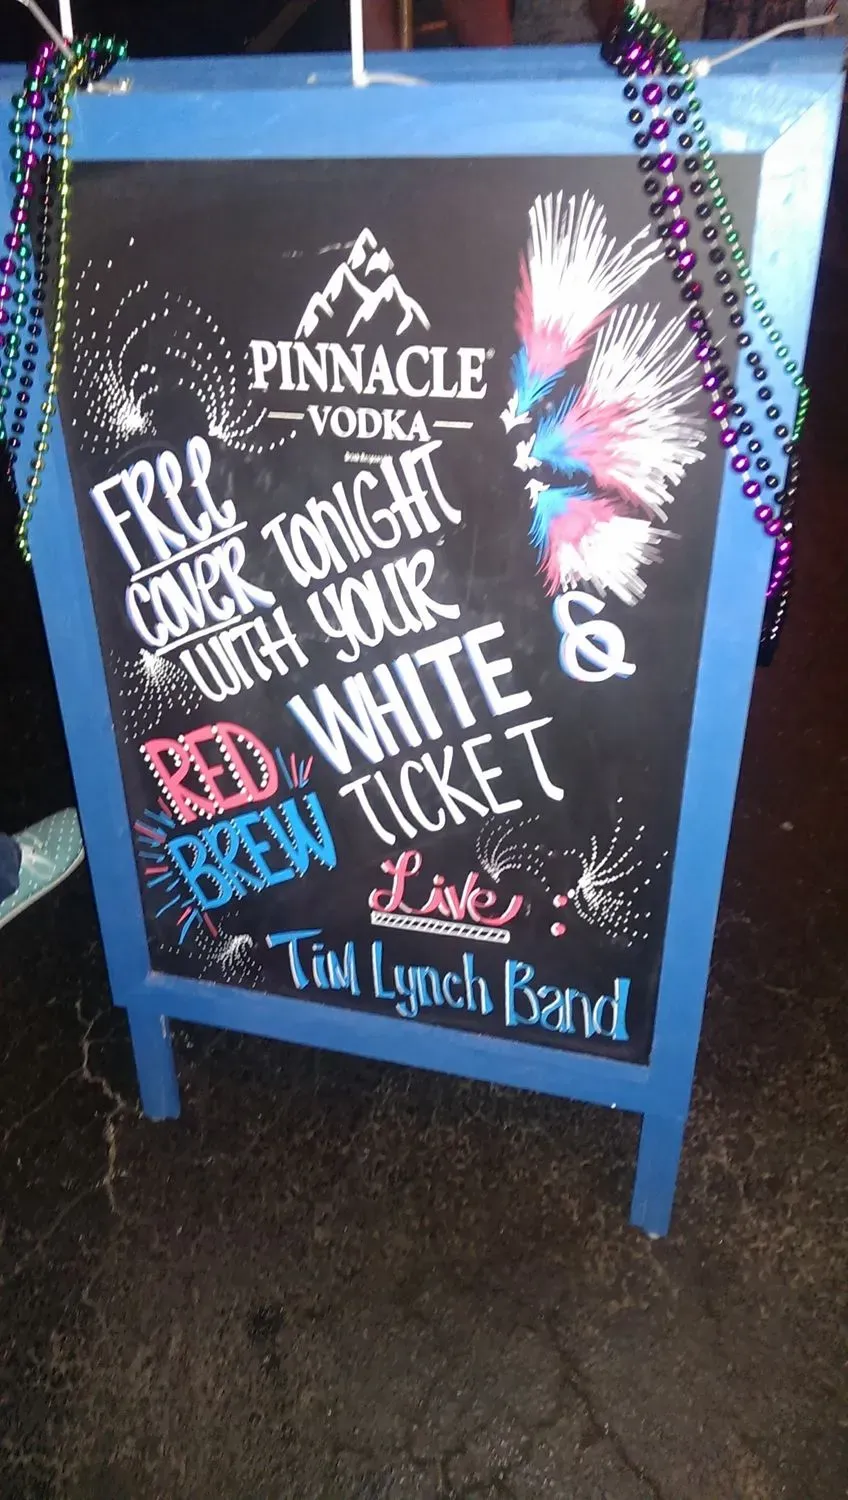 PINNACLE®
VODKA
FREE
COVER TONIGHT
WITH YOUR
RED WHITE &
BREW TICKET
Live:
Tim Lynch Band